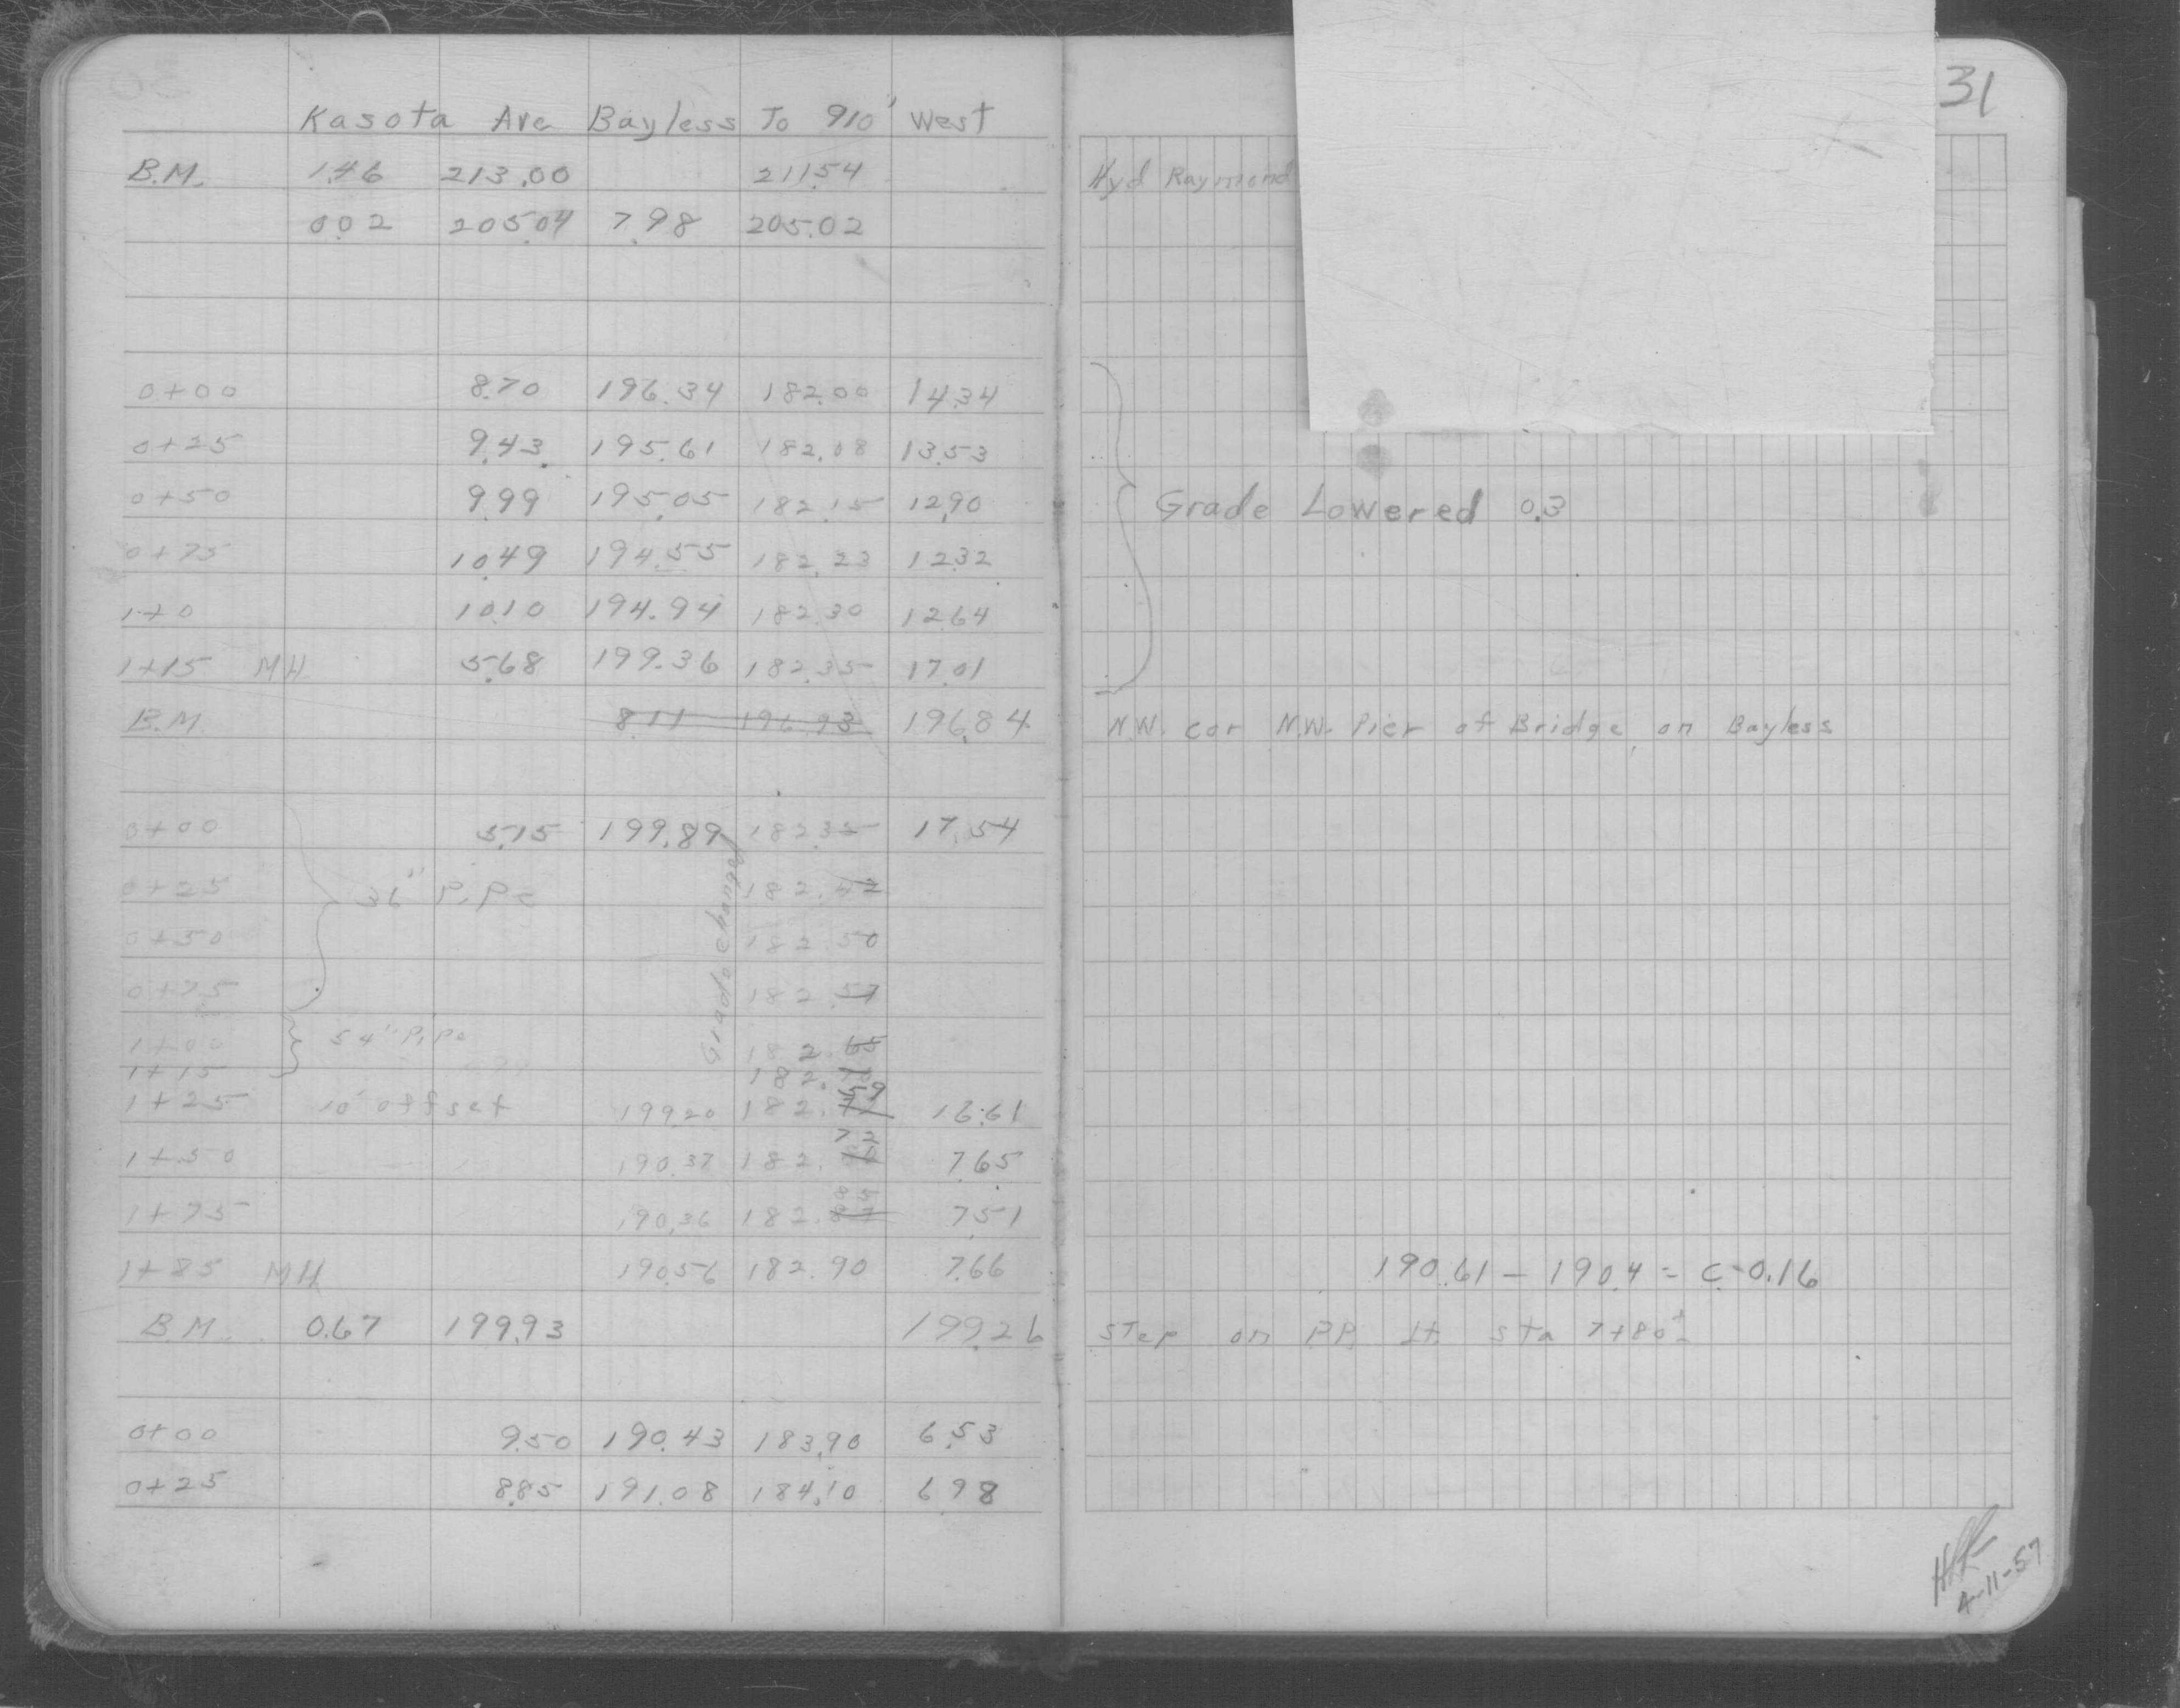 31
Kasota Ave Bayless To 910' West
B.M. 1.46 213.00 211.54 Hyd Raymond
0.02 205.04 7.98 205.02
0+00 8.70 196.34 182.00 14.34
0+25 9.43 195.61 182.08 13.53
0+50 9.99 195.05 182.15 12.90 Grade Lowered 0.3
0+75 10.49 194.55 182.23 12.32
1+0 10.10 194.94 182.30 12.64
1+15 MH 5.68 199.36 182.35 17.01
B.M. 8.11 196.93 196.84 N.W. cor N.W. Pier of Bridge on Bayless
0+00 5.15 199.89 182.35 17.54
0+25 36" Pipe 182.42
0+50 182.50
0+75 182.57
Grade changed
1+00 54" Pipe 182.65
1+15 182.
1+25 10' offset 199.20 182.59 16.61
1+50 190.37 182.72 7.65
1+75 190.36 182.85 7.51
1+85 MH 190.56 182.90 7.66 190.61 - 190.4 = C-0.16
B.M. 0.67 199.93 199.26 Step on P.P. Lt sta 7+80±
0+00 9.50 190.43 183.90 6.53
0+25 8.85 191.08 184.10 6.98
4-11-57